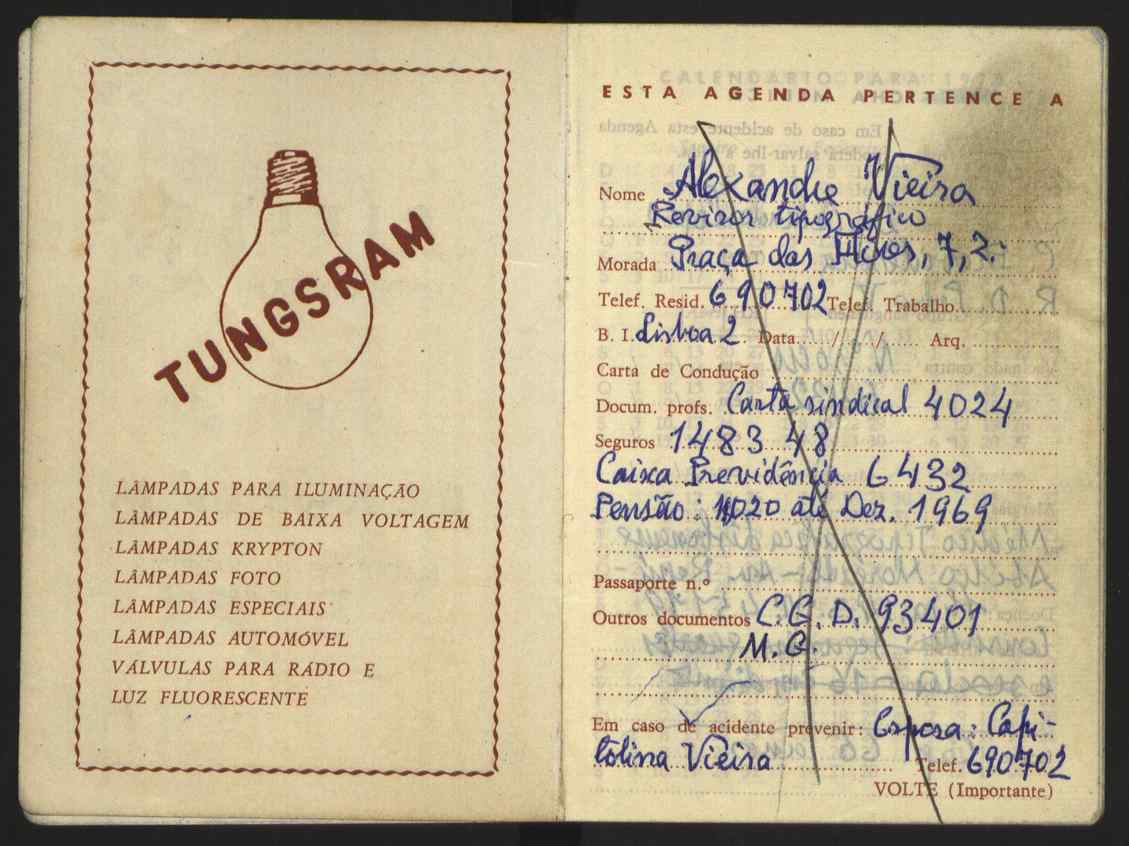 TUNGSRAM
LÂMPADAS PARA ILUMINAÇÃO
LÂMPADAS DE BAIXA VOLTAGEM
LÂMPADAS KRYPTON
LÂMPADAS FOTO
LÂMPADAS ESPECIAIS
LÂMPADAS AUTOMÓVEL
VÁLVULAS PARA RÁDIO E
LUZ FLUORESCENTE
ESTA AGENDA PERTENCE A
Nome Alexandre Vieira
Revisor tipográfico
Morada Praça das Flores, 7, 2.
Telef. Resid. 690702 Telef. Trabalho
B. I. Lisboa 2 Data / / Arq.
Carta de Condução
Docum. profs. Carta sindical 4024
Seguros 1483 48
Caixa Previdência 6432
Pensão: 1020 até Dez. 1969
Passaporte n.º
Outros documentos C. G. D. 93401
M. G.
Em caso de acidente prevenir: Esposa: Capi-
tolina Vieira Telef. 690702
VOLTE (Importante)